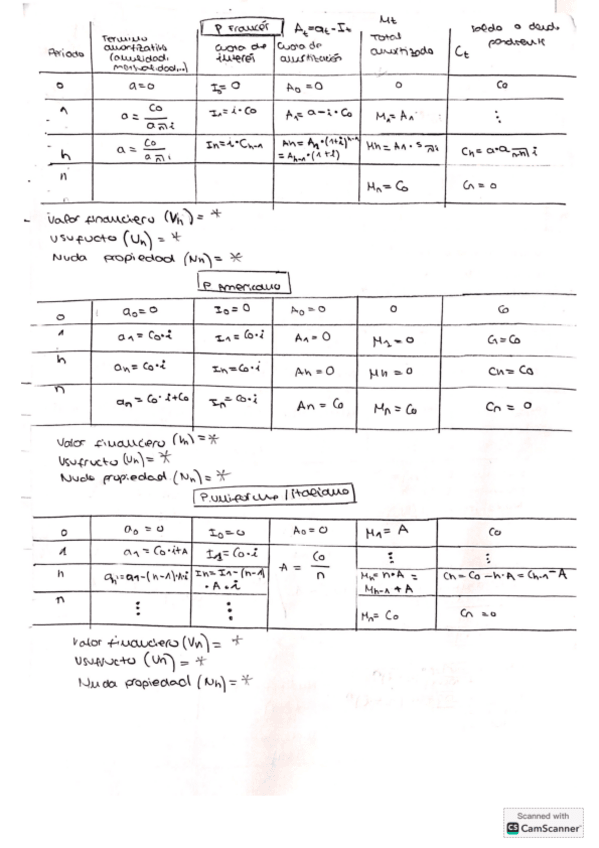 P Francés
At=at-It
Mt
Periodo
Termino amortizativo (anualidad, mensualidad...)
Cuota de interés
Cuota de amortización
Total amortizado
saldo o deuda pendiente
Ct
0 a=0 I₀=0 A₀=0 0 C₀
1 a = C₀/a n̅|i I₁=i·C₀ A₁=a-i·C₀ M₁=A₁ ⋮
h a = C₀/a n̅|i In=i·Ch-1 Ah=A₁·(1+i)^h-1 =Ah-1·(1+i) Mh=A1·s n̅|i Ch=a·a n-h|i
n Mn=C₀ Cn=0
Valor financiero (Vh)=*
Usufructo (Uh)=*
Nuda propiedad (Nh)=*
P Americano
0 a₀=0 I₀=0 A₀=0 0 C₀
1 a1=C₀·i I1=C₀·i A1=0 M1=0 C1=C₀
h an=C₀·i In=C₀·i Ah=0 Mh=0 Ch=C₀
n an=C₀·i+C₀ In=C₀·i An=C₀ Mn=C₀ Cn=0
Valor financiero (Vh)=*
Usufructo (Uh)=*
Nuda propiedad (Nh)=*
P. Uniforme / Italiano
0 a₀=0 I₀=0 A₀=0 M1=A C₀
1 a1=C₀·i+A I1=C₀·i A=C₀/n ⋮ ⋮
h ah=a1-(h-1)·A·i Ih=I1-(h-1)·A·i Mh=h·A=Mh-1+A Ch=C₀-h·A=Ch-1-A
n ⋮ ⋮ Mn=C₀ Cn=0
Valor financiero (Vh)=*
Usufructo (Uh)=*
Nuda propiedad (Nh)=*
Scanned with
CS CamScanner